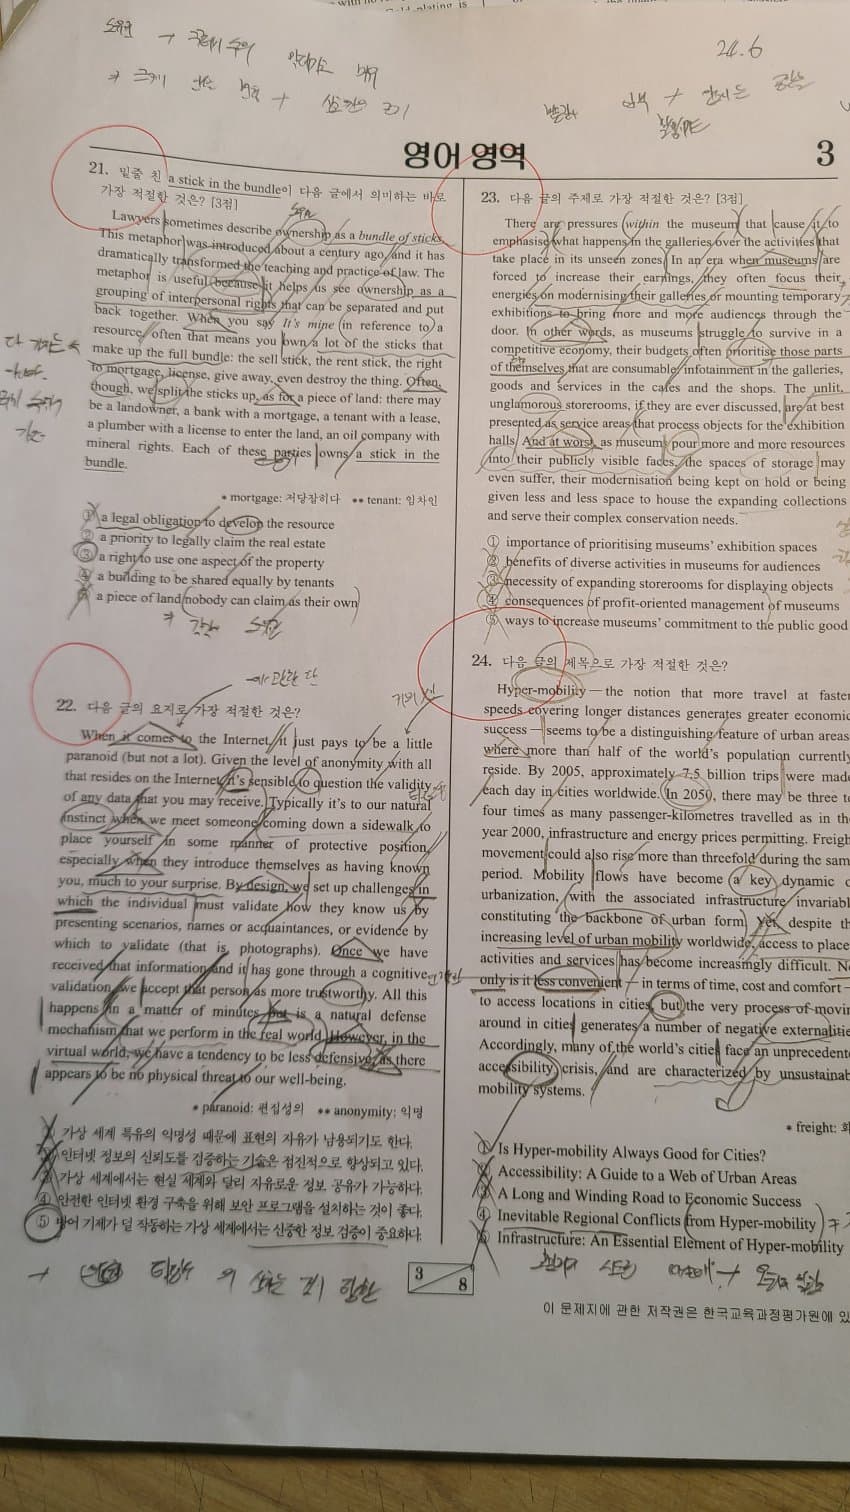 24.6
영어 영역
3
21. 밑줄 친 a stick in the bundle이 다음 글에서 의미하는 바로
가장 적절한 것은? [3점]
Lawyers sometimes describe ownership as a bundle of sticks.
This metaphor was introduced about a century ago, and it has
dramatically transformed the teaching and practice of law. The
metaphor is useful because it helps us see ownership as a
grouping of interpersonal rights that can be separated and put
back together. When you say It's mine in reference to a
resource, often that means you own a lot of the sticks that
make up the full bundle: the sell stick, the rent stick, the right
to mortgage, license, give away, even destroy the thing. Often,
though, we split the sticks up, as for a piece of land: there may
be a landowner, a bank with a mortgage, a tenant with a lease,
a plumber with a license to enter the land, an oil company with
mineral rights. Each of these parties owns a stick in the
bundle.
* mortgage: 저당잡히다 ** tenant: 임차인
① a legal obligation to develop the resource
② a priority to legally claim the real estate
③ a right to use one aspect of the property
④ a building to be shared equally by tenants
⑤ a piece of land nobody can claim as their own
22. 다음 글의 요지로 가장 적절한 것은?
When it comes to the Internet, it just pays to be a little
paranoid (but not a lot). Given the level of anonymity with all
that resides on the Internet, it's sensible to question the validity
of any data that you may receive. Typically it's to our natural
instinct when we meet someone coming down a sidewalk to
place yourself in some manner of protective position,
especially when they introduce themselves as having known
you, much to your surprise. By design, we set up challenges in
which the individual must validate how they know us by
presenting scenarios, names or acquaintances, or evidence by
which to validate (that is, photographs). Once we have
received that information and it has gone through a cognitive
validation, we accept that person as more trustworthy. All this
happens in a matter of minutes but is a natural defense
mechanism that we perform in the real world. However, in the
virtual world, we have a tendency to be less defensive, as there
appears to be no physical threat to our well-being.
* paranoid: 편집성의 ** anonymity: 익명
① 가상 세계 특유의 익명성 때문에 표현의 자유가 남용되기도 한다.
② 인터넷 정보의 신뢰도를 검증하는 기술은 점진적으로 향상되고 있다.
③ 가상 세계에서는 현실 세계와 달리 자유로운 정보 공유가 가능하다.
④ 안전한 인터넷 환경 구축을 위해 보안 프로그램을 설치하는 것이 좋다.
⑤ 방어 기제가 덜 작동하는 가상 세계에서는 신중한 정보 검증이 중요하다.
23. 다음 글의 주제로 가장 적절한 것은? [3점]
There are pressures within the museum that cause it to
emphasise what happens in the galleries over the activities that
take place in its unseen zones. In an era when museums are
forced to increase their earnings, they often focus their
energies on modernising their galleries or mounting temporary
exhibitions to bring more and more audiences through the
door. In other words, as museums struggle to survive in a
competitive economy, their budgets often prioritise those parts
of themselves that are consumable: infotainment in the galleries,
goods and services in the cafes and the shops. The unlit,
unglamorous storerooms, if they are ever discussed, are at best
presented as service areas that process objects for the exhibition
halls. And at worst, as museums pour more and more resources
into their publicly visible faces, the spaces of storage may
even suffer, their modernisation being kept on hold or being
given less and less space to house the expanding collections
and serve their complex conservation needs.
① importance of prioritising museums' exhibition spaces
② benefits of diverse activities in museums for audiences
③ necessity of expanding storerooms for displaying objects
④ consequences of profit-oriented management of museums
⑤ ways to increase museums' commitment to the public good
24. 다음 글의 제목으로 가장 적절한 것은?
Hyper-mobility — the notion that more travel at faster
speeds covering longer distances generates greater economic
success — seems to be a distinguishing feature of urban areas,
where more than half of the world's population currently
reside. By 2005, approximately 7.5 billion trips were made
each day in cities worldwide. In 2050, there may be three to
four times as many passenger-kilometres travelled as in the
year 2000, infrastructure and energy prices permitting. Freight
movement could also rise more than threefold during the same
period. Mobility flows have become a key dynamic
urbanization, with the associated infrastructure invariab
constituting the backbone of urban form. Yet, despite th
increasing level of urban mobility worldwide, access to place
activities and services has become increasingly difficult. N
only is it less convenient — in terms of time, cost and comfort —
to access locations in cities, but the very process of movin
around in cities generates a number of negative externalitie
Accordingly, many of the world's cities face an unprecedent
accessibility crisis, and are characterized by unsustainab
mobility systems.
* freight:
① Is Hyper-mobility Always Good for Cities?
② Accessibility: A Guide to a Web of Urban Areas
③ A Long and Winding Road to Economic Success
④ Inevitable Regional Conflicts from Hyper-mobility
⑤ Infrastructure: An Essential Element of Hyper-mobility
3
8
이 문제지에 관한 저작권은 한국교육과정평가원에 있